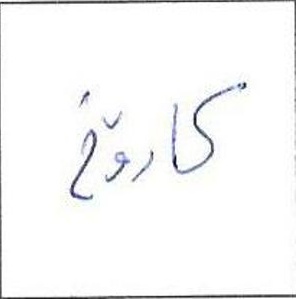 کارۆخ